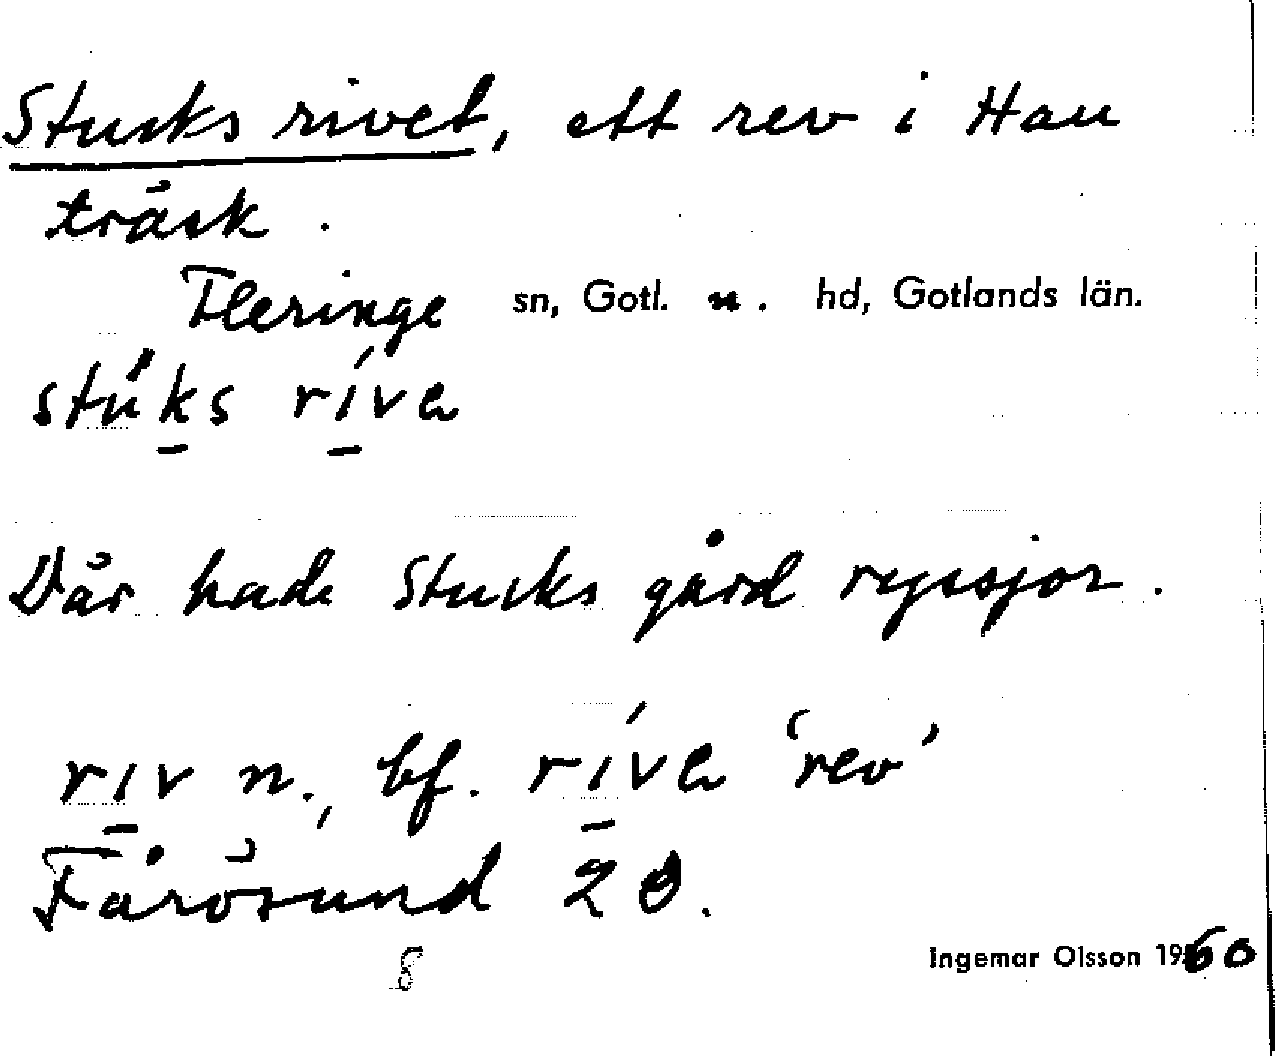 Stucks rivet, ett rev i Hau
träsk.
Fleringe sn, Gotl. n. hd, Gotlands län.
stúks ríva
Där hade Stucks gård ryssjor.
rıv n., bf. ríva 'rev'
Fårösund 20.
8
Ingemar Olsson 1960